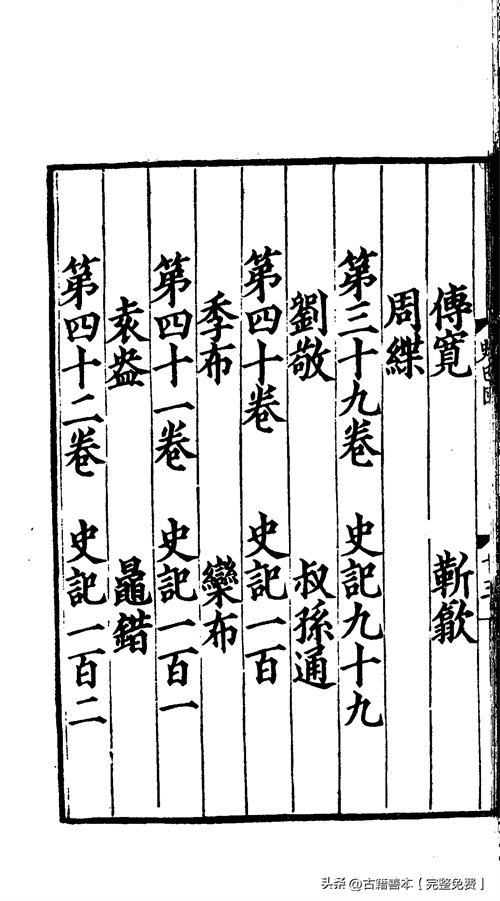 傅寬 靳歙
周緤
第三十九卷 史記九十九
劉敬 叔孫通
第四十卷 史記一百
季布 欒布
第四十一卷 史記一百一
袁盎 鼂錯
第四十二卷 史記一百二
头条 @古籍善本【完整免费】